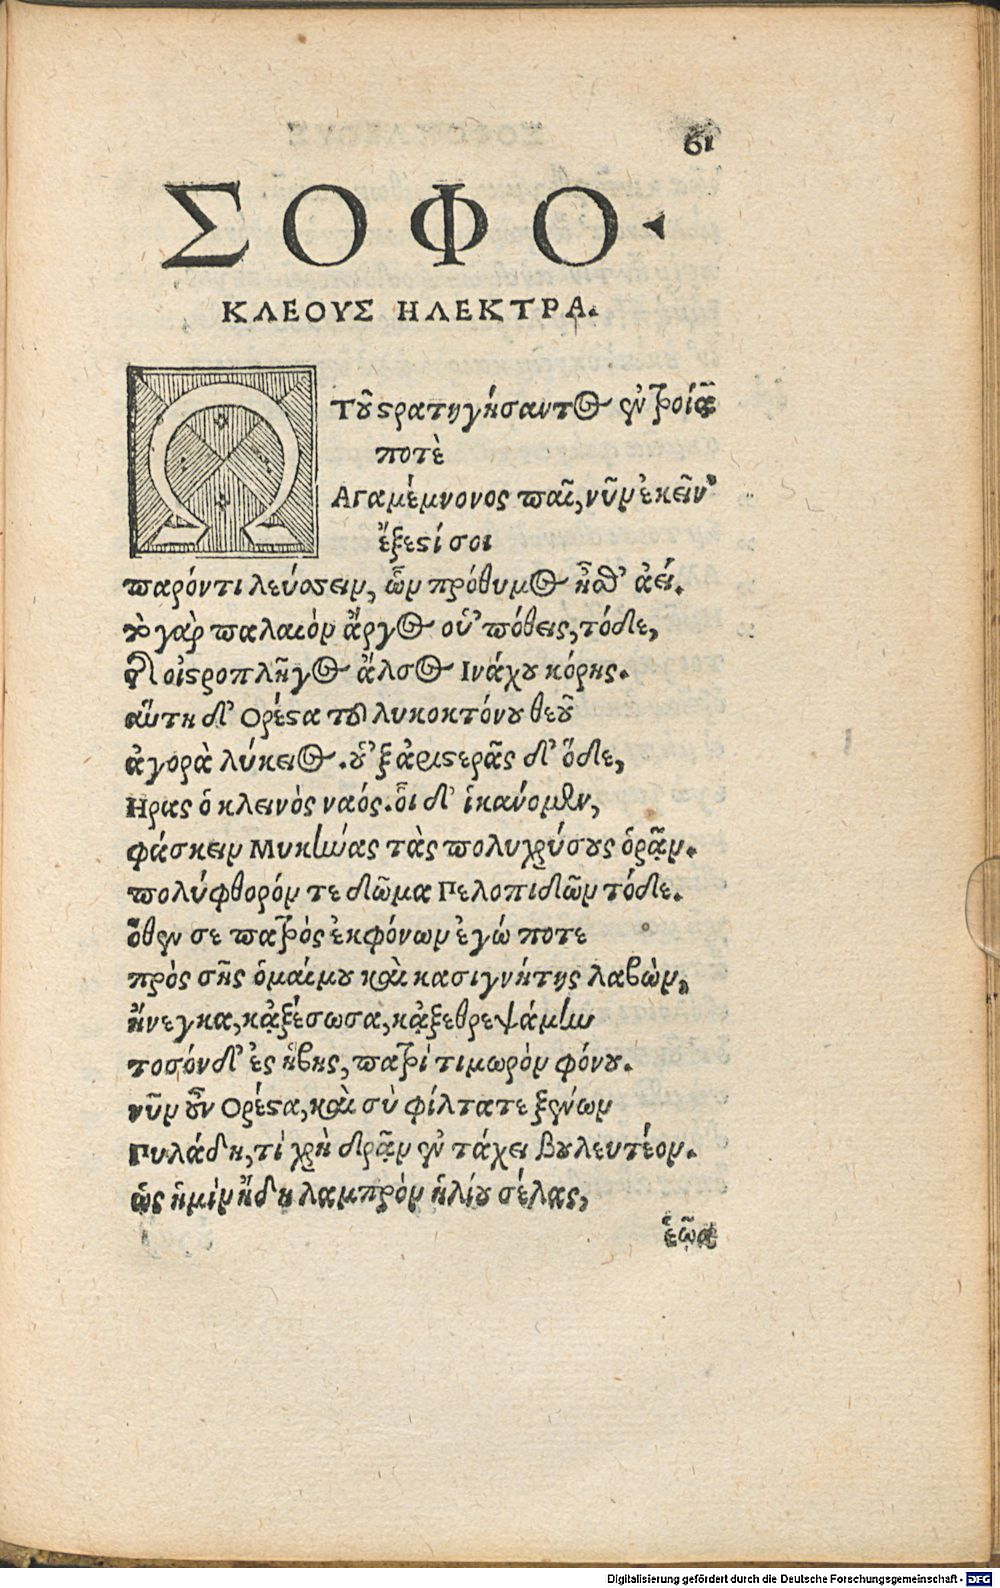 61
ΣΟΦΟ-
ΚΛΕΟΥΣ ΗΛΕΚΤΡΑ.
Ω Τοῦ στρατηγήσαντος ἐν τροίᾳ
ποτὲ
Αγαμέμνονος παῖ, νῦν ἐκεῖν'
ἔξεστί σοι
παρόντι λεύσσειν, ὧν πρόθυμος ἦσθ' ἀεί.
τὸ γὰρ παλαιὸν ἄργος οὑπόθεις, τόδε,
τῆς οἰστροπλῆγος ἄλσος Ινάχου κόρης.
αὕτη δ' Ορέστα τοῦ λυκοκτόνου θεοῦ
ἀγορὰ λύκειος. οὑξ ἀριστερᾶς δ' ὅδε,
Ηρας ὁ κλεινὸς ναός. οἷ δ' ἱκάνομεν,
φάσκειν Μυκήνας τὰς πολυχρύσους ὁρᾷν.
πολύφθορόν τε δῶμα Πελοπιδῶν τόδε.
ὅθεν σε πατρὸς ἐκφόνων ἐγώ ποτε
πρὸς σῆς ὁμαίμου καὶ κασιγνήτης λαβὼν,
ἤνεγκα, κᾀξέσωσα, κᾀξεθρεψάμην
τοσόνδ' ἐς ἥβης, πατρὶ τιμωρὸν φόνου.
νῦν οὖν Ορέστα, καὶ σὺ φίλτατε ξένων
Πυλάδη, τί χρὴ δρᾷν ἐν τάχει βουλευτέον.
ὡς ἡμὶν ἤδη λαμπρὸν ἡλίου σέλας,
ἑῷα
Digitalisierung gefördert durch die Deutsche Forschungsgemeinschaft - DFG